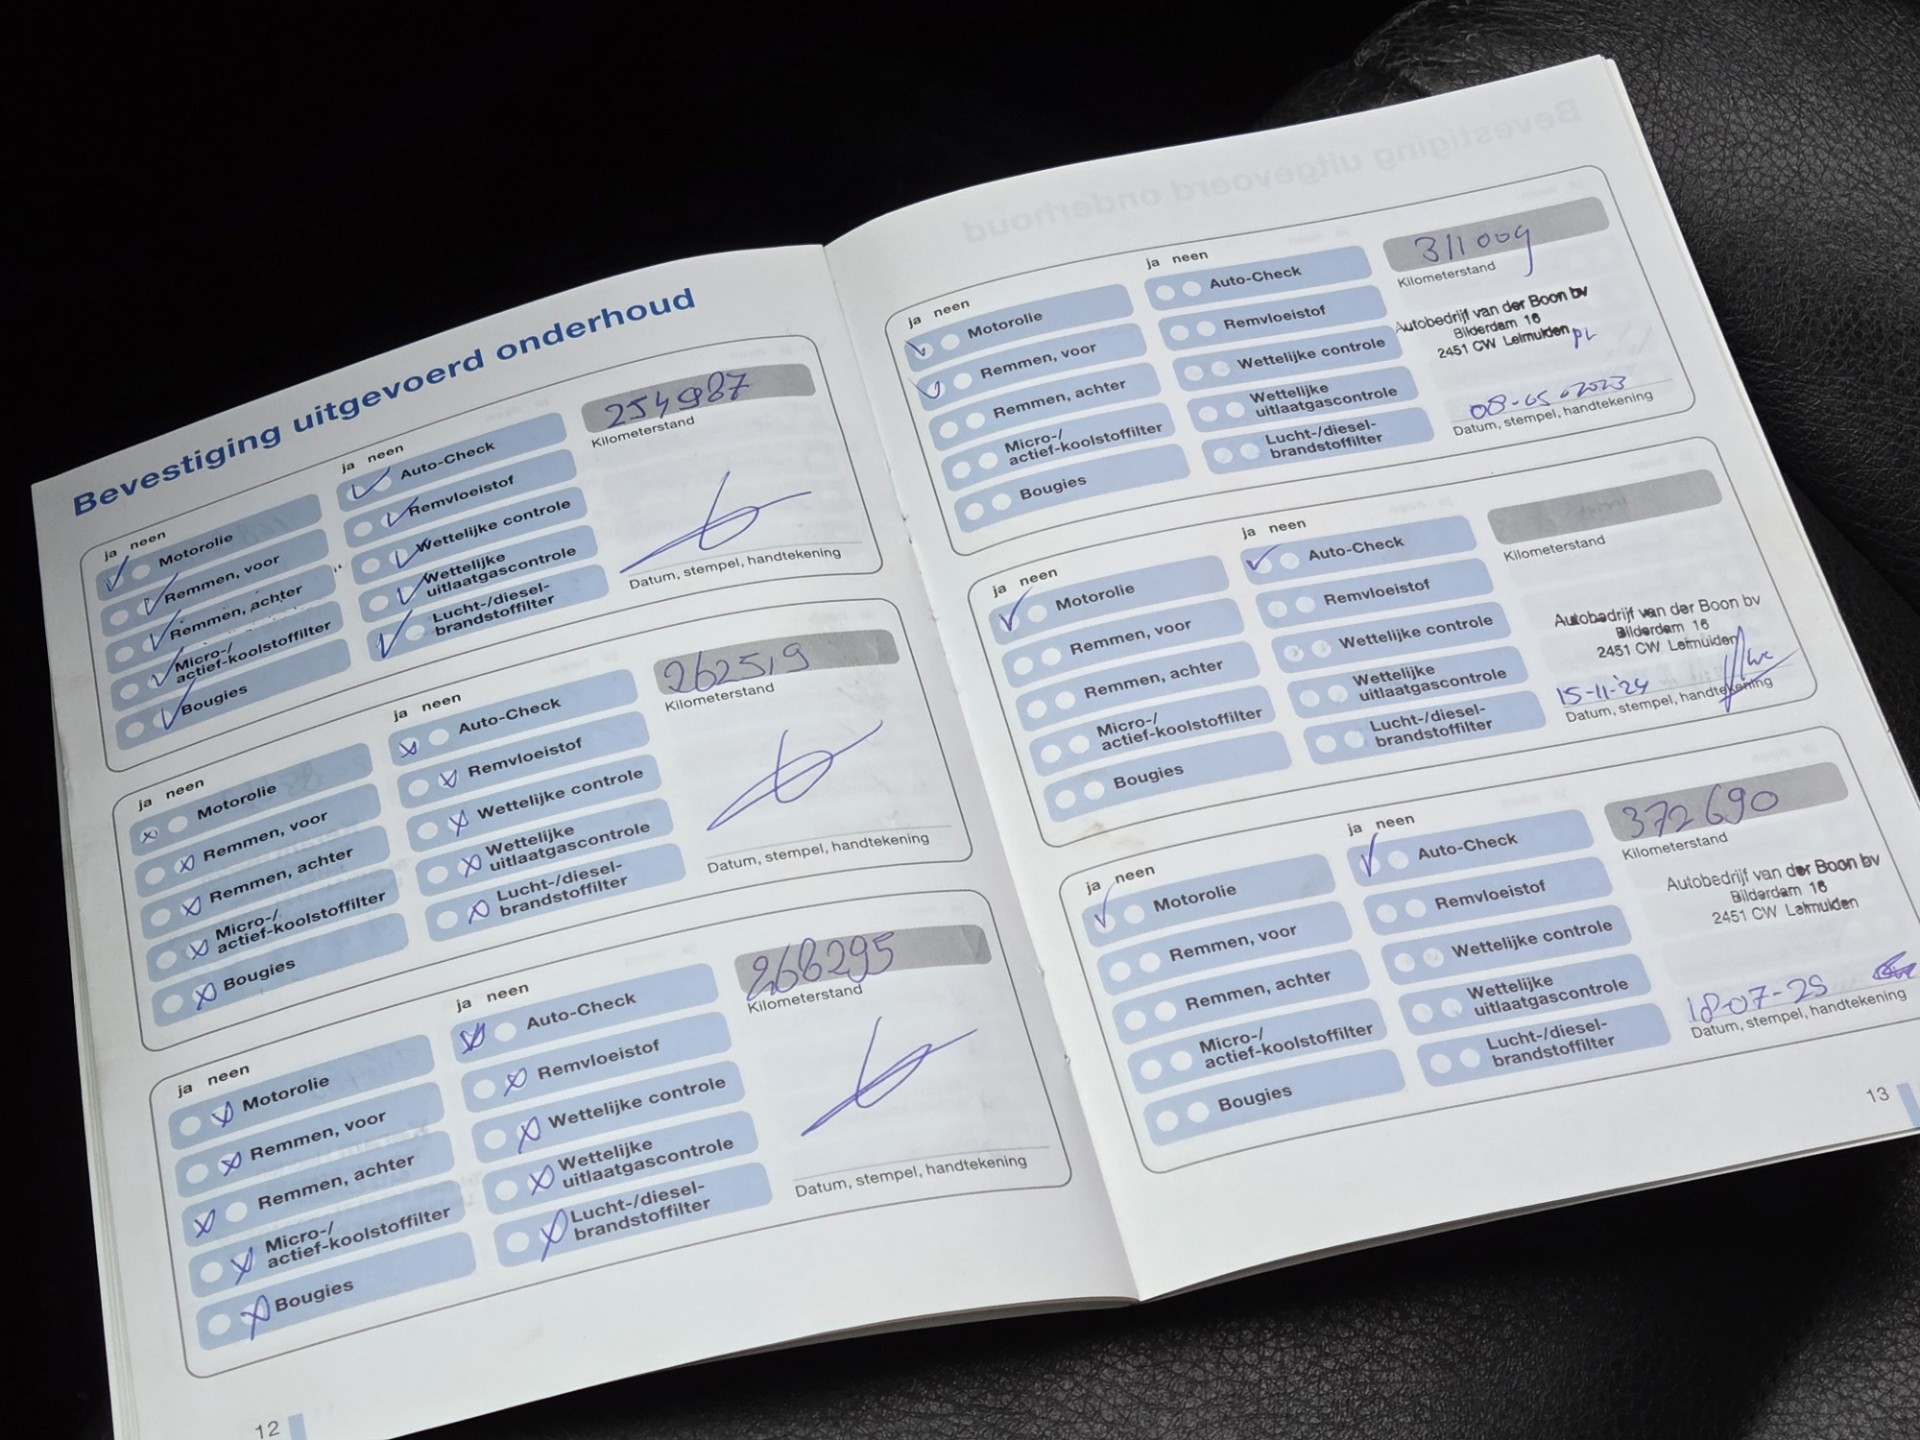 Bevestiging uitgevoerd onderhoud
ja neen
Motorolie
Remmen, voor
Remmen, achter
Micro-/
actief-koolstoffilter
Bougies
ja neen
Auto-Check
Remvloeistof
Wettelijke controle
Wettelijke
uitlaatgascontrole
Lucht-/diesel-
brandstoffilter
254987
Kilometerstand
Datum, stempel, handtekening
ja neen
Motorolie
Remmen, voor
Remmen, achter
Micro-/
actief-koolstoffilter
Bougies
ja neen
Auto-Check
Remvloeistof
Wettelijke controle
Wettelijke
uitlaatgascontrole
Lucht-/diesel-
brandstoffilter
262519
Kilometerstand
Datum, stempel, handtekening
ja neen
Motorolie
Remmen, voor
Remmen, achter
Micro-/
actief-koolstoffilter
Bougies
ja neen
Auto-Check
Remvloeistof
Wettelijke controle
Wettelijke
uitlaatgascontrole
Lucht-/diesel-
brandstoffilter
268295
Kilometerstand
Datum, stempel, handtekening
12
ja neen
Motorolie
Remmen, voor
Remmen, achter
Micro-/
actief-koolstoffilter
Bougies
ja neen
Auto-Check
Remvloeistof
Wettelijke controle
Wettelijke
uitlaatgascontrole
Lucht-/diesel-
brandstoffilter
311009
Kilometerstand
Autobedrijf van der Boon bv
Bilderdam 16
2451 CW Leimuiden
08-05-2023
Datum, stempel, handtekening
ja neen
Motorolie
Remmen, voor
Remmen, achter
Micro-/
actief-koolstoffilter
Bougies
ja neen
Auto-Check
Remvloeistof
Wettelijke controle
Wettelijke
uitlaatgascontrole
Lucht-/diesel-
brandstoffilter
Kilometerstand
Autobedrijf van der Boon bv
Bilderdam 16
2451 CW Leimuiden
15-11-'24
Datum, stempel, handtekening
ja neen
Motorolie
Remmen, voor
Remmen, achter
Micro-/
actief-koolstoffilter
Bougies
ja neen
Auto-Check
Remvloeistof
Wettelijke controle
Wettelijke
uitlaatgascontrole
Lucht-/diesel-
brandstoffilter
372690
Kilometerstand
Autobedrijf van der Boon bv
Bilderdam 16
2451 CW Leimuiden
18-07-25
Datum, stempel, handtekening
13